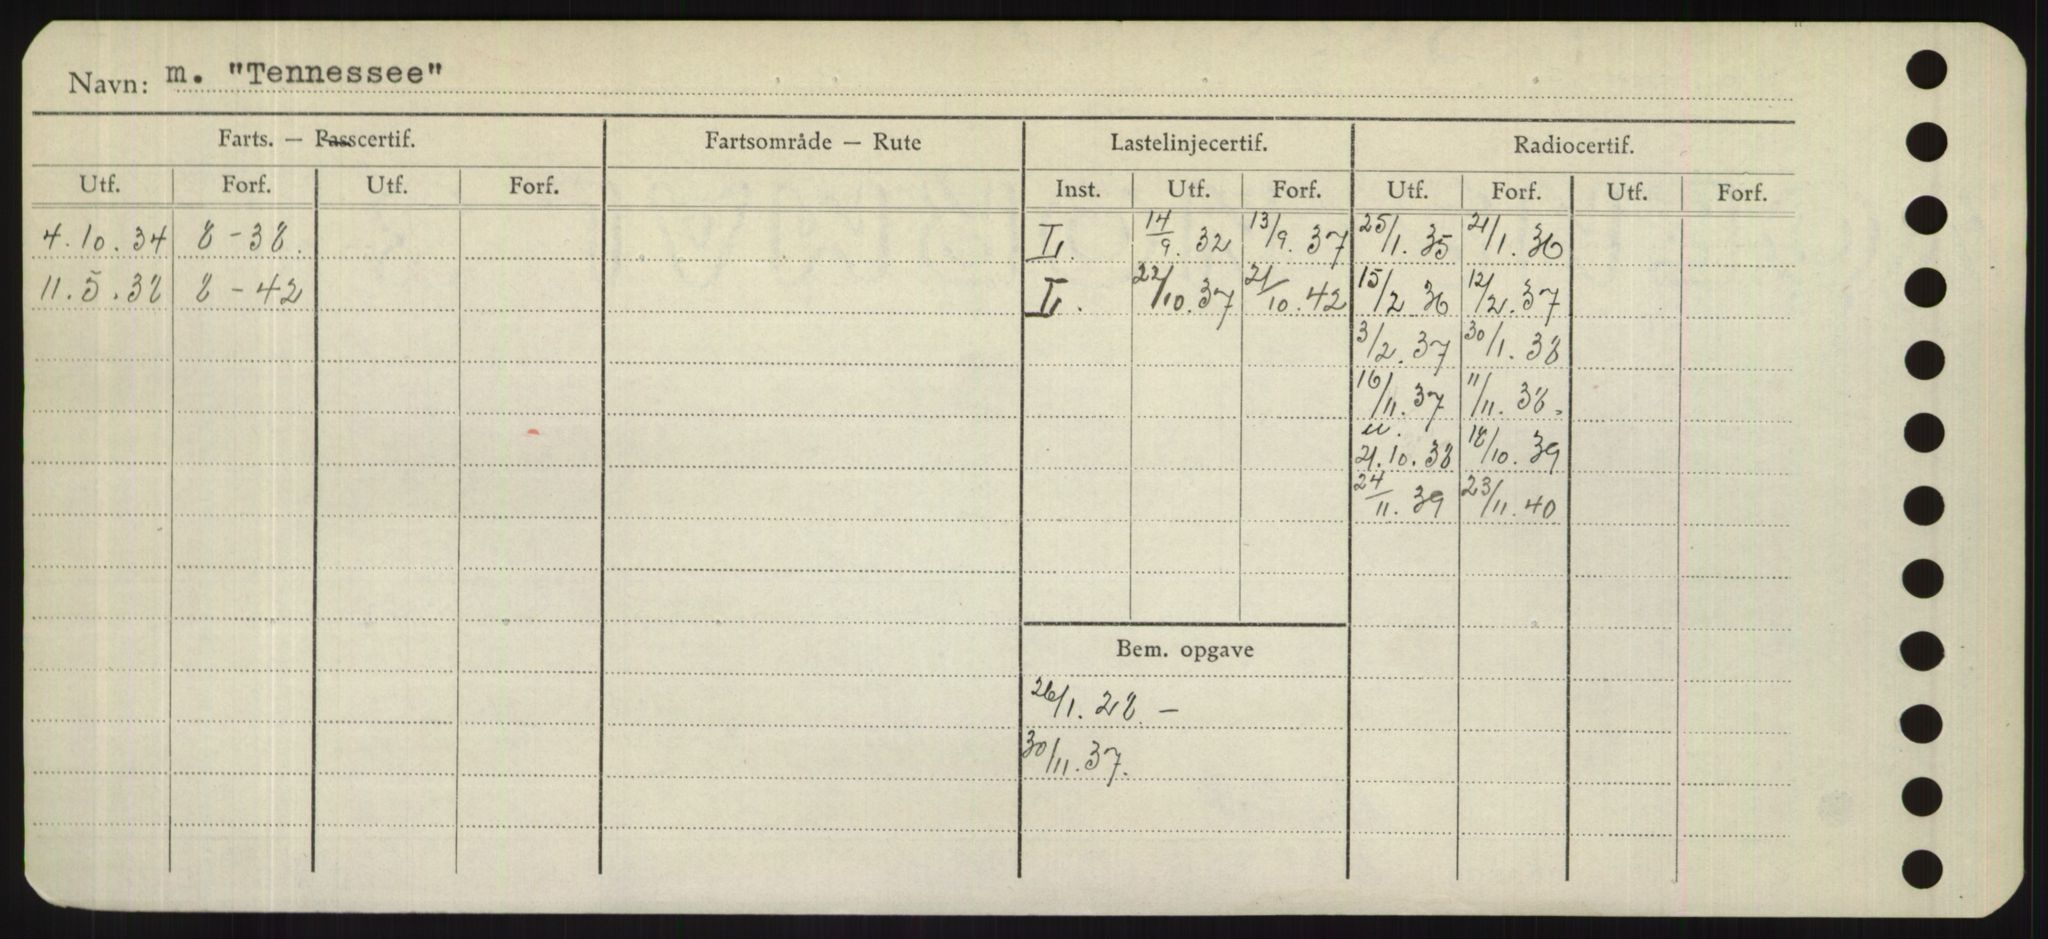 Navn: m. "Tennessee"
Farts. — Passcertif. Fartsområde — Rute Lastelinjecertif. Radiocertif.
Utf. Forf. Utf. Forf. Inst. Utf. Forf. Utf. Forf. Utf. Forf.
4.10.34 8-38. L. 14/9. 32 13/9. 37 25/1. 35 21/1. 36
11.5.38 8-42 L. 22/10. 37 21/10. 42 15/2 36 12/2. 37
3/2. 37 30/1. 38
16/11. 37 11/11. 38.
u.
21.10.38 18/10. 39
24/11. 39 23/11. 40
Bem. opgave
26/1. 28 —
30/11. 37.